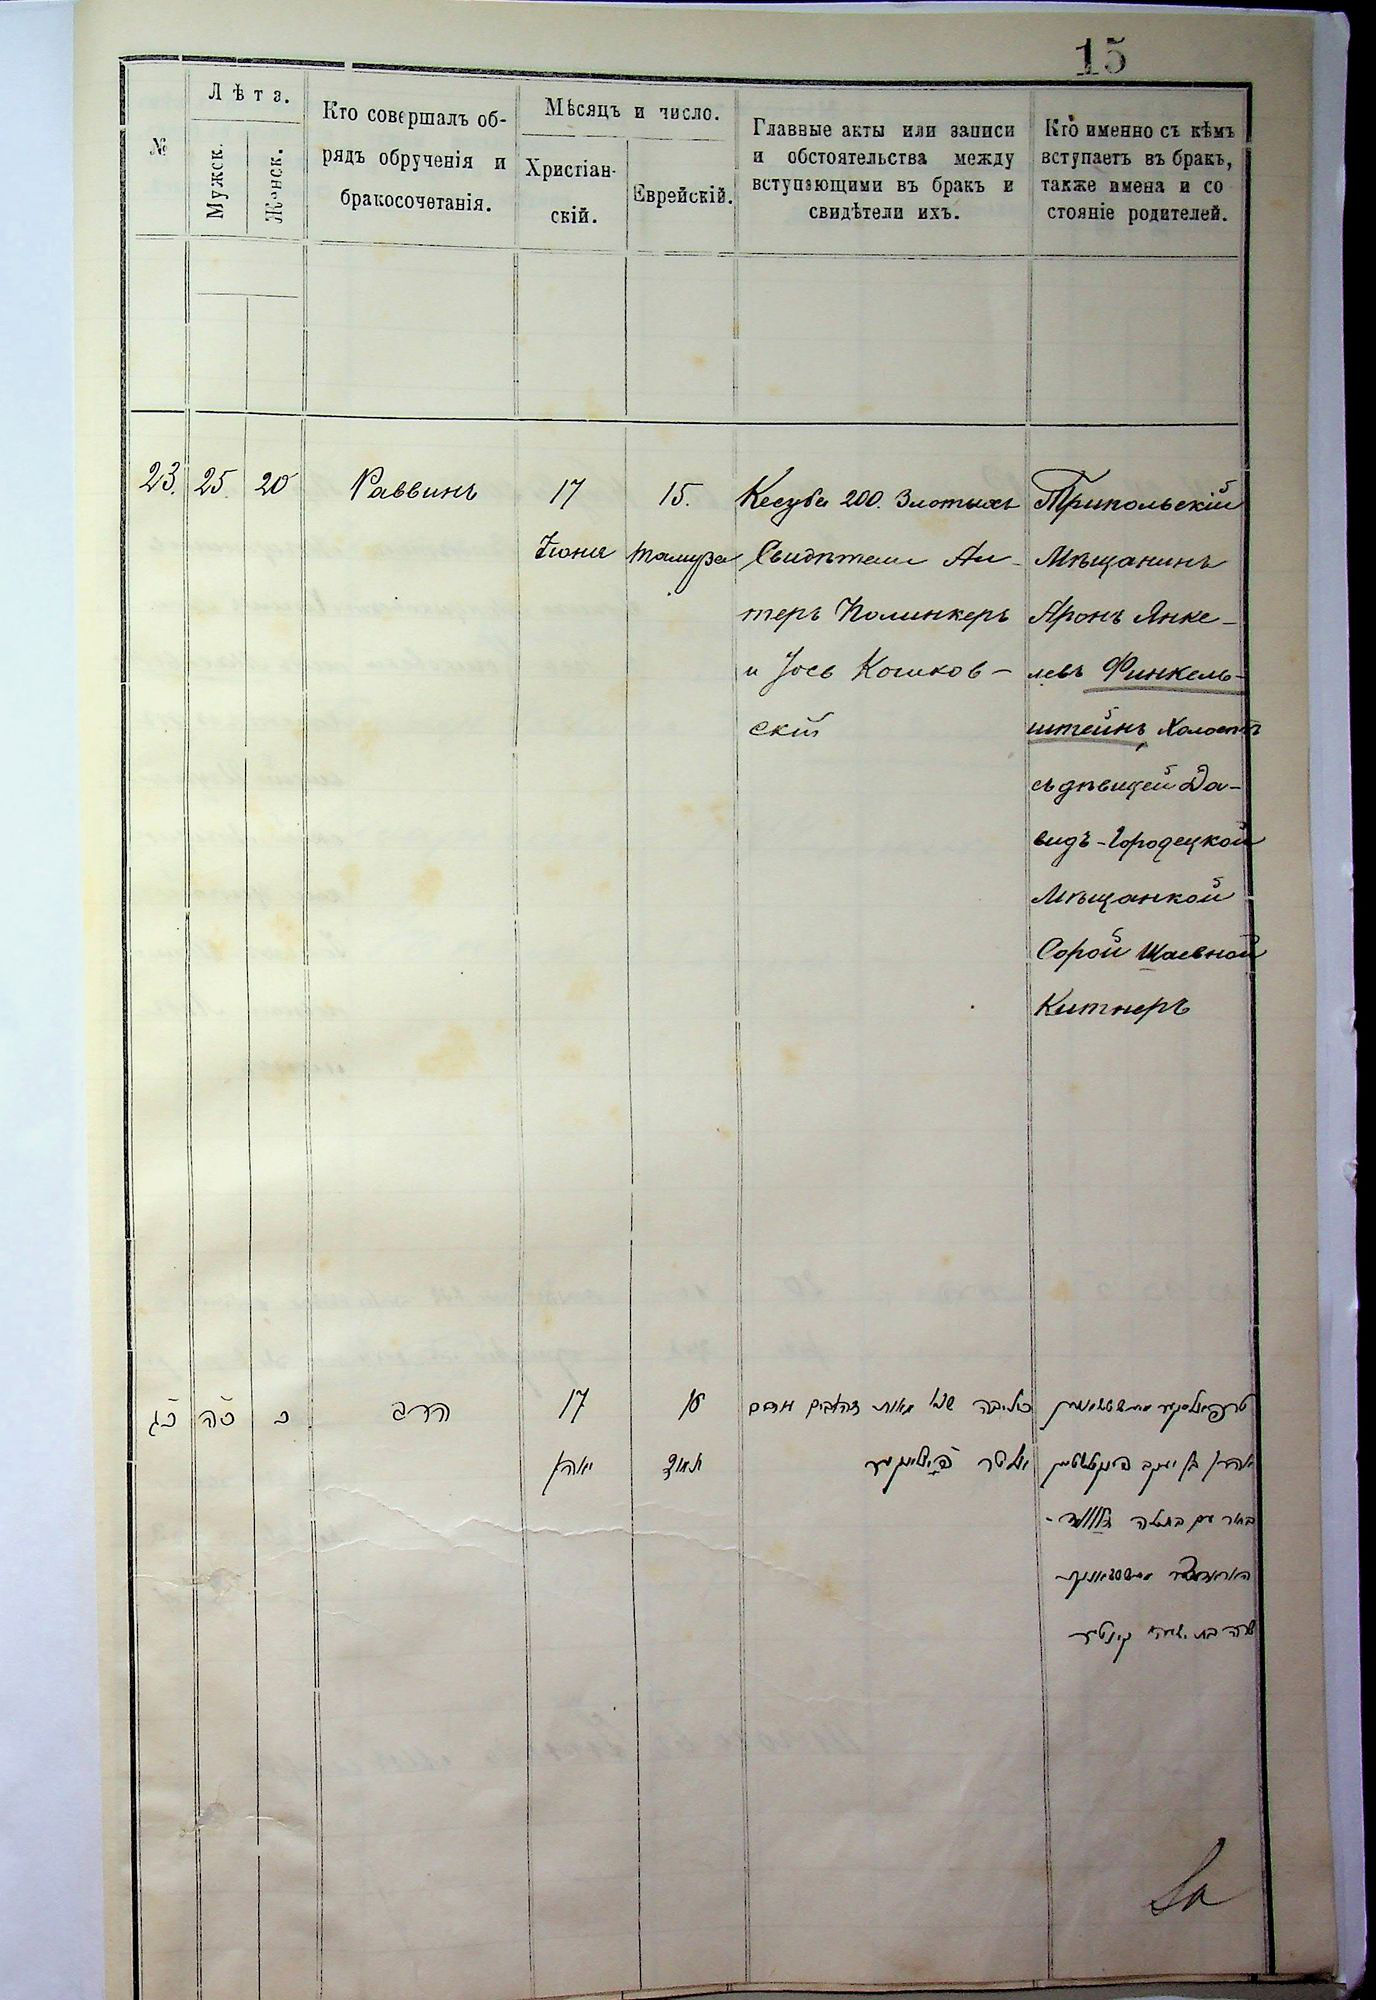 15
№
Лѣта.
Мужск.
Женск.
Кто совершалъ об-
рядъ обрученія и
бракосочетанія.
Мѣсяцъ и число.
Христіан-
скій.
Еврейскій.
Главные акты или записи
и обстоятельства между
вступающими въ бракъ и
свидѣтели ихъ.
Кто именно съ кѣмъ
вступаетъ въ бракъ,
также имена и со
стояніе родителей.
23.
25.
20
Раввинъ
17
Іюня
15.
Тамуза
Кесуба 200. Злотыхъ
Свидѣтели Ал-
теръ Полинкеръ
и Іось Кошков-
скій
Трипольскій
Мѣщанинъ
Аронъ Янке-
левъ Финкель-
штейнъ Холостъ
съ дѣвицей Да-
видъ-Городецкой
Мѣщанкой
Сорой Шаевной
Китнеръ
כג
כה
כ
הרב
17
יאהן
תמוז
מאות זהובים
אלטר
אהרן בן יעקב פינקעלשטיין
בחור עם בתולה
שרה בת ישעי' קיטנער